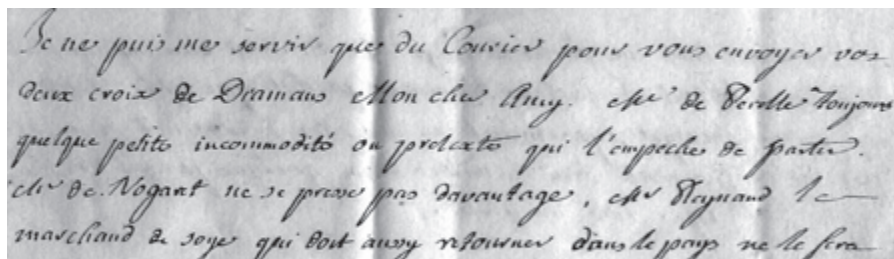 Je ne puis me servir que du Courier pour vous envoyer vos
deux croix de Diamans Mon cher Amy. Mr de toujours
quelque petite incommodité ou pretexte qui l'empeche de partir.
Mr de Nogaret ne se presse pas davantage, Mr Reynaud le
marchand de soye qui doit aussy retourner dans le pays ne le fera